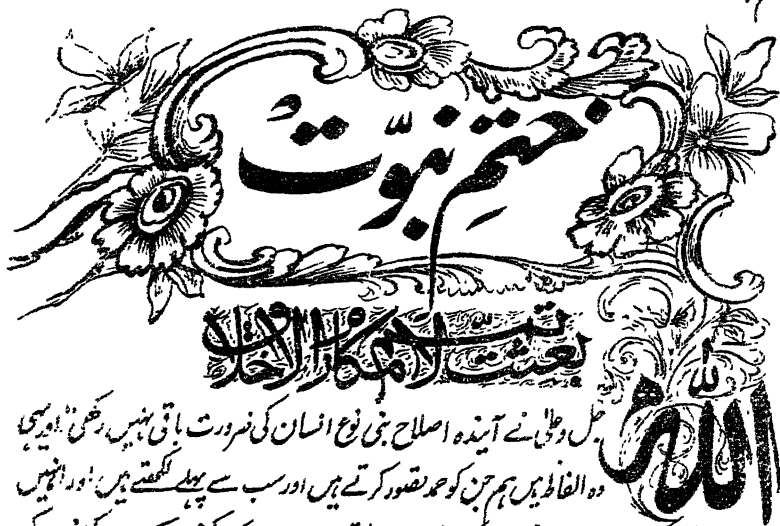 ختمِ نبوّتؐ
بعثت لاتمم مکارم الاخلاق
اللہ جل وعلیٰ نے آیندہ اصلاح بنی نوع انسان کی ضرورت باقی نہیں رکھی اور یہی
وہ الفاظ ہیں ہم جن کو حمد تصور کرتے ہیں اور سب سے پہلے لکھتے ہیں اور انہیں